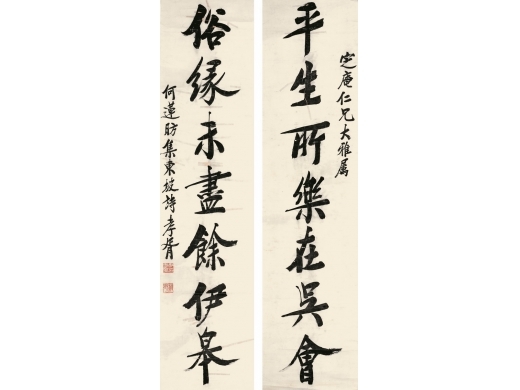 定庵仁兄大雅属
平生所樂在吳會
俗緣未盡餘伊皋
何蓮舫集東坡詩孝胥